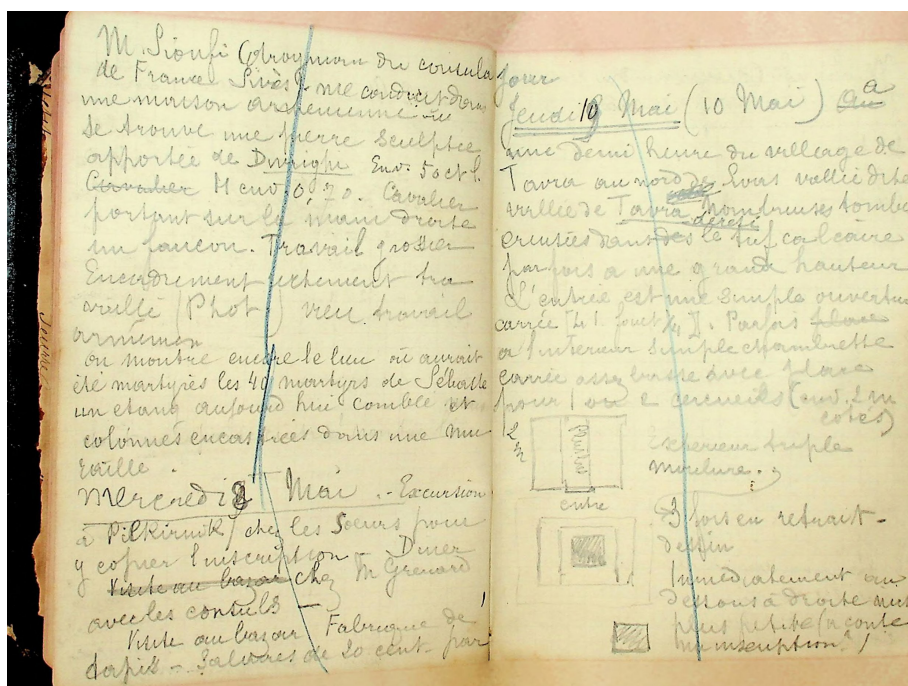 M. Sioufi (drogman du consula
de France Sivas) me conduit dans
une maison arménienne où
se trouve une pierre sculptée
apportée de Divrighi Env. 50 ct l.
Cavalier H env. 0,70. Cavalier
portant sur la main droite
un faucon. Travail grossier
Encadrement richement tra
vaillé (Phot) vieu travail
arménien
on montre encore le lieu où aurait
été martyrisés les 40 martyrs de Sébaste
un etang aujourd'hui comblé et
colonnes encastrées dans une mu
raille.
Mercredi 9 Mai. - Excursion
à Pirkinik chez les Soeurs pour
y copier l'inscription Diner
Visite au bazar chez M Grenard
avec les consuls -
Visite au bazar Fabrique de
tapis - Salaires de 20 cent. par
jour
Jeudi 10 Mai (10 Mai) au a
une demi heure du village de
Tavra au nord de Sivas vallée dite
vallée de Tavra Nombreuses tombe
creusées dans le tuf calcaire
parfois a une grande hauteur
L'entrée est une simple ouvertu
carrée. Parfois place
a l'interieur simple chambrette
carrée assez basse avec place
pour 1 ou 2 cercueils (env. 2 m
cotés)
2 m
Exterieur triple
moulure.
entre
3 fois en retrait -
dessin
Immédiatement au
dessous à droite
plus petite
inscription